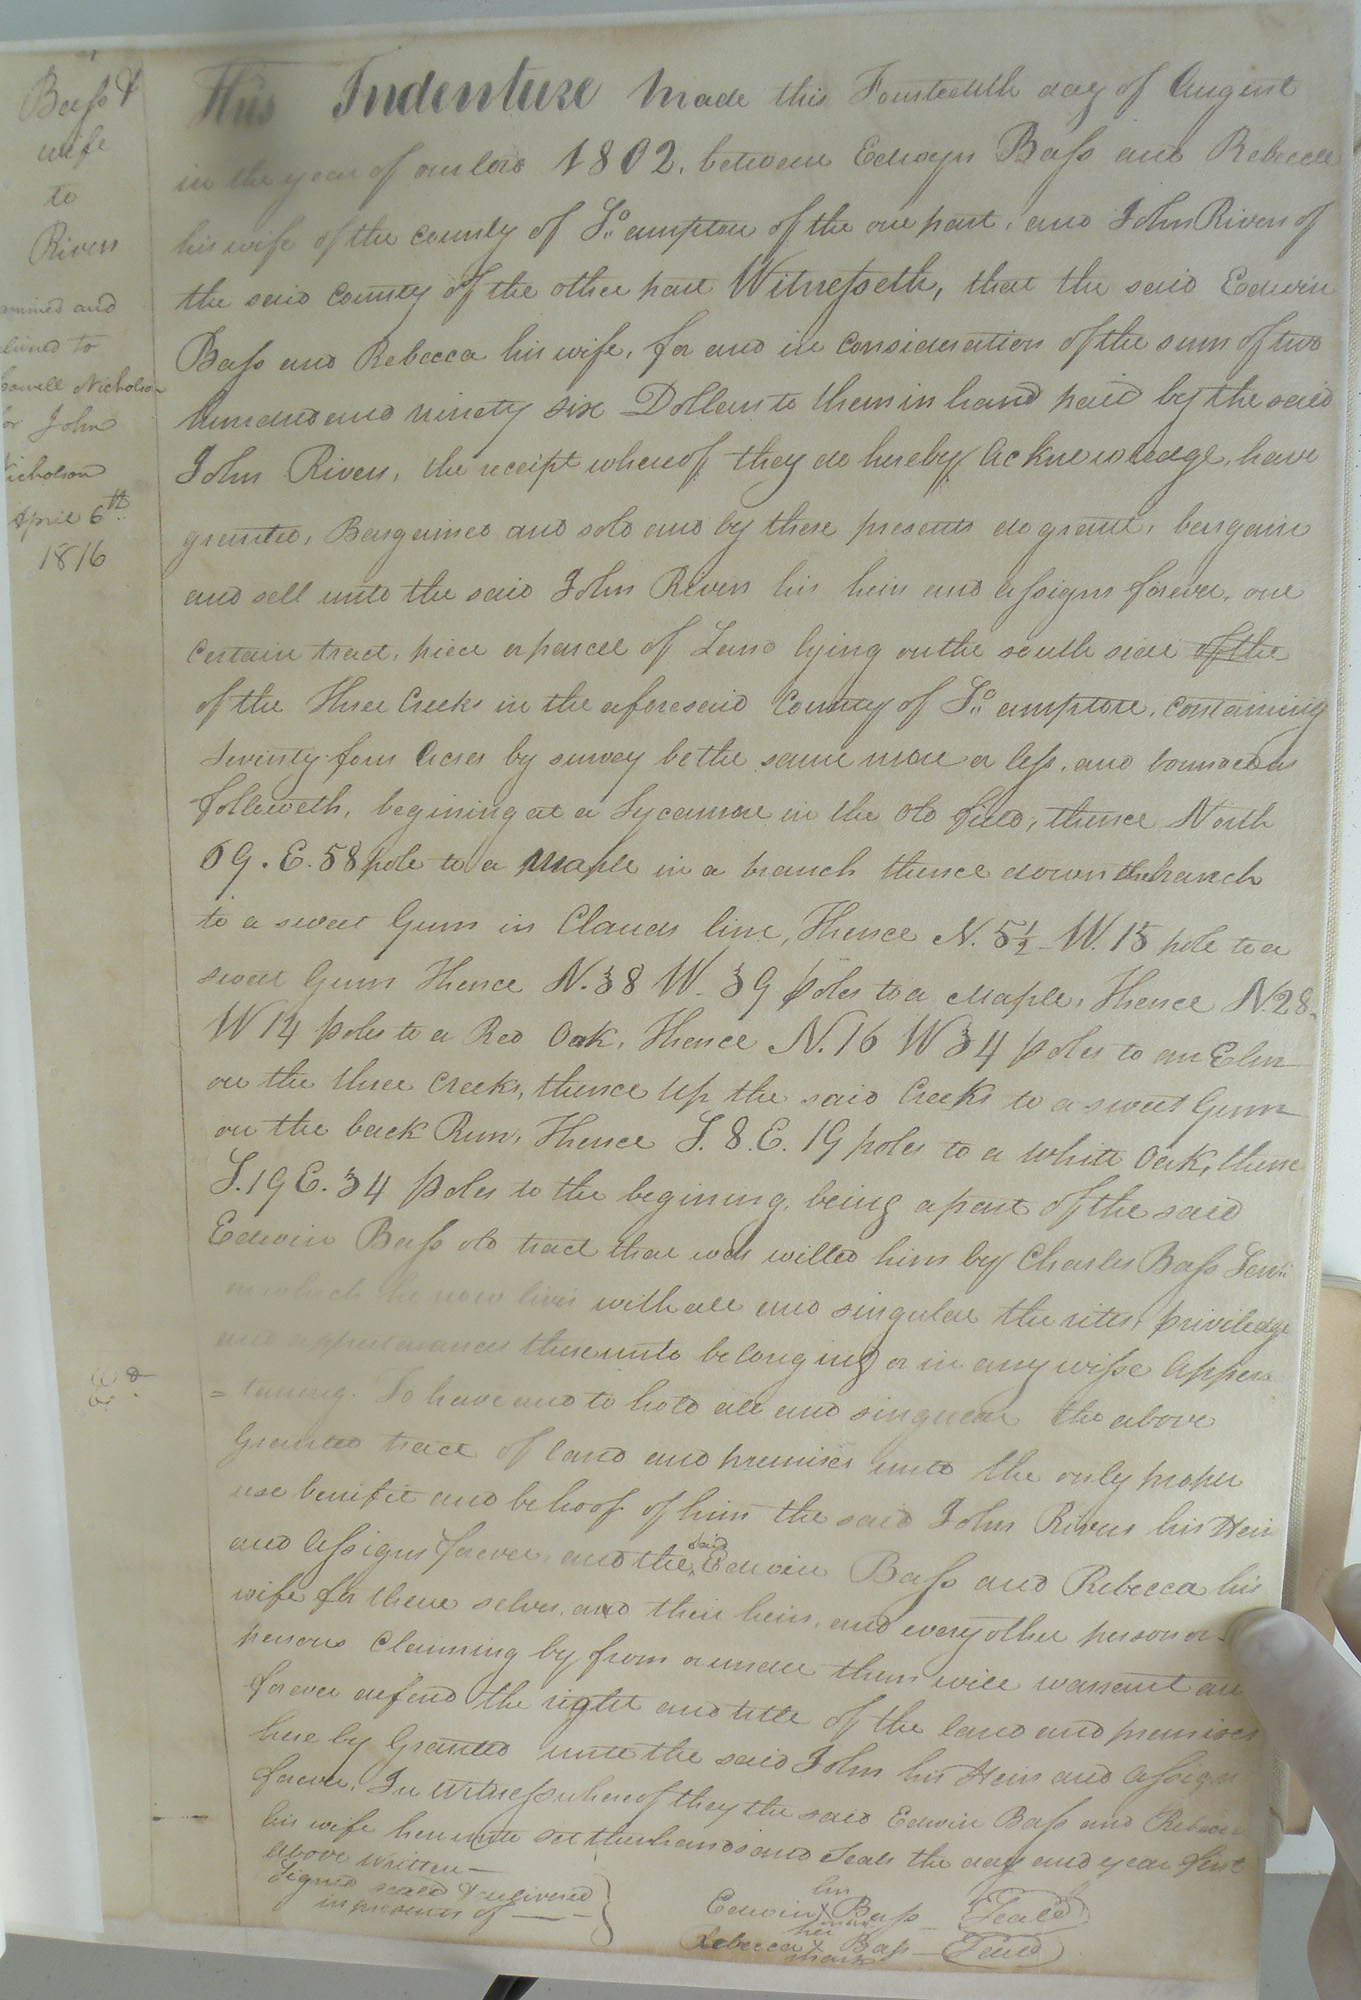 Bass &
wife
to
Rivers
amined and
livered to
Cowell Nicholson
for John
Nicholson
April 6th
1816
This Indenture made this Fourteenth day of August
in the year of our lord 1802, between Edwyn Bass and Rebecca
his wife of the county of So ampton of the one part, and John Rivers of
the said County of the other part Witnesseth, that the said Edwin
Bass and Rebecca his wife, for and in consideration of the sum of two
hundred and ninety six Dollars to them in hand paid by the said
John Rivers, the receipt whereof they do hereby Acknowledge, have
granted, Bargained and sold and by these presents do grant, bargain
and sell unto the said John Rivers his heirs and assigns forever, one
certain tract, piece or parcel of Land lying on the south side of the
of the Three Creeks in the aforesaid County of So ampton, containing
Seventy four Acres by survey be the same more or less, and bounded as
followeth, begining at a Sycamore in the old field, thence North
69. E. 58 pole to a Maple in a branch thence down the branch
to a sweet Gum in Clauds line, Thence N. 5½ W. 15 pole to a
sweet Gum Thence N. 38 W. 39 poles to a Maple, Thence N. 28.
W 14 poles to a Red Oak, Thence N. 16 W 34 poles to an Elm
on the three Creeks, thence up the said Creeks to a sweet Gum
on the back Run, Thence S. 8. E. 19 poles to a White Oak, thence
S. 19 E. 34 poles to the begining, being a part of the said
Edwin Bass old tract that was willed him by Charles Bass Senr
on which he now lives with all and singular the rites, priviledge
and appurtenances thereunto belonging or in any wise Apper
= taining. To have and to hold all and singular the above
Granted tract of land and premises unto the only proper
use benifit and behoof of him the said John Rivers his Heirs
and Assigns forever, and the said Edwin Bass and Rebecca his
wife for theire selves, and their heirs, and every other person or
persons Claiming by from or under them will warrant and
forever defend the right and title of the land and premises
here by Granted unto the said John his Heirs and Assigns
forever. In Witness whereof they the said Edwin Bass and Rebecca
his wife hereunto set their hands and Seals the day and year first
above written
Signed seald & delivered
in presence of
his
Edwin X Bass Seald
mark
her
Rebecca X Bass Seald
mark